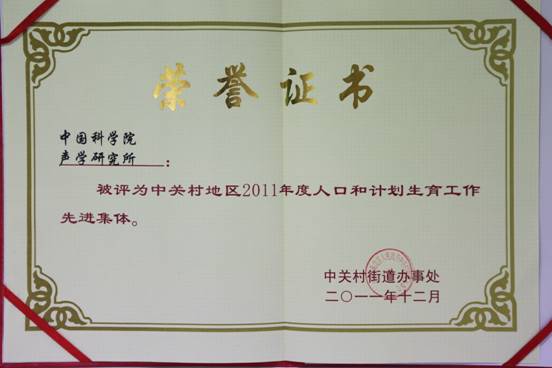 荣誉证书
中国科学院
声学研究所：
被评为中关村地区2011年度人口和计划生育工作
先进集体。
中关村街道办事处
二〇一一年十二月